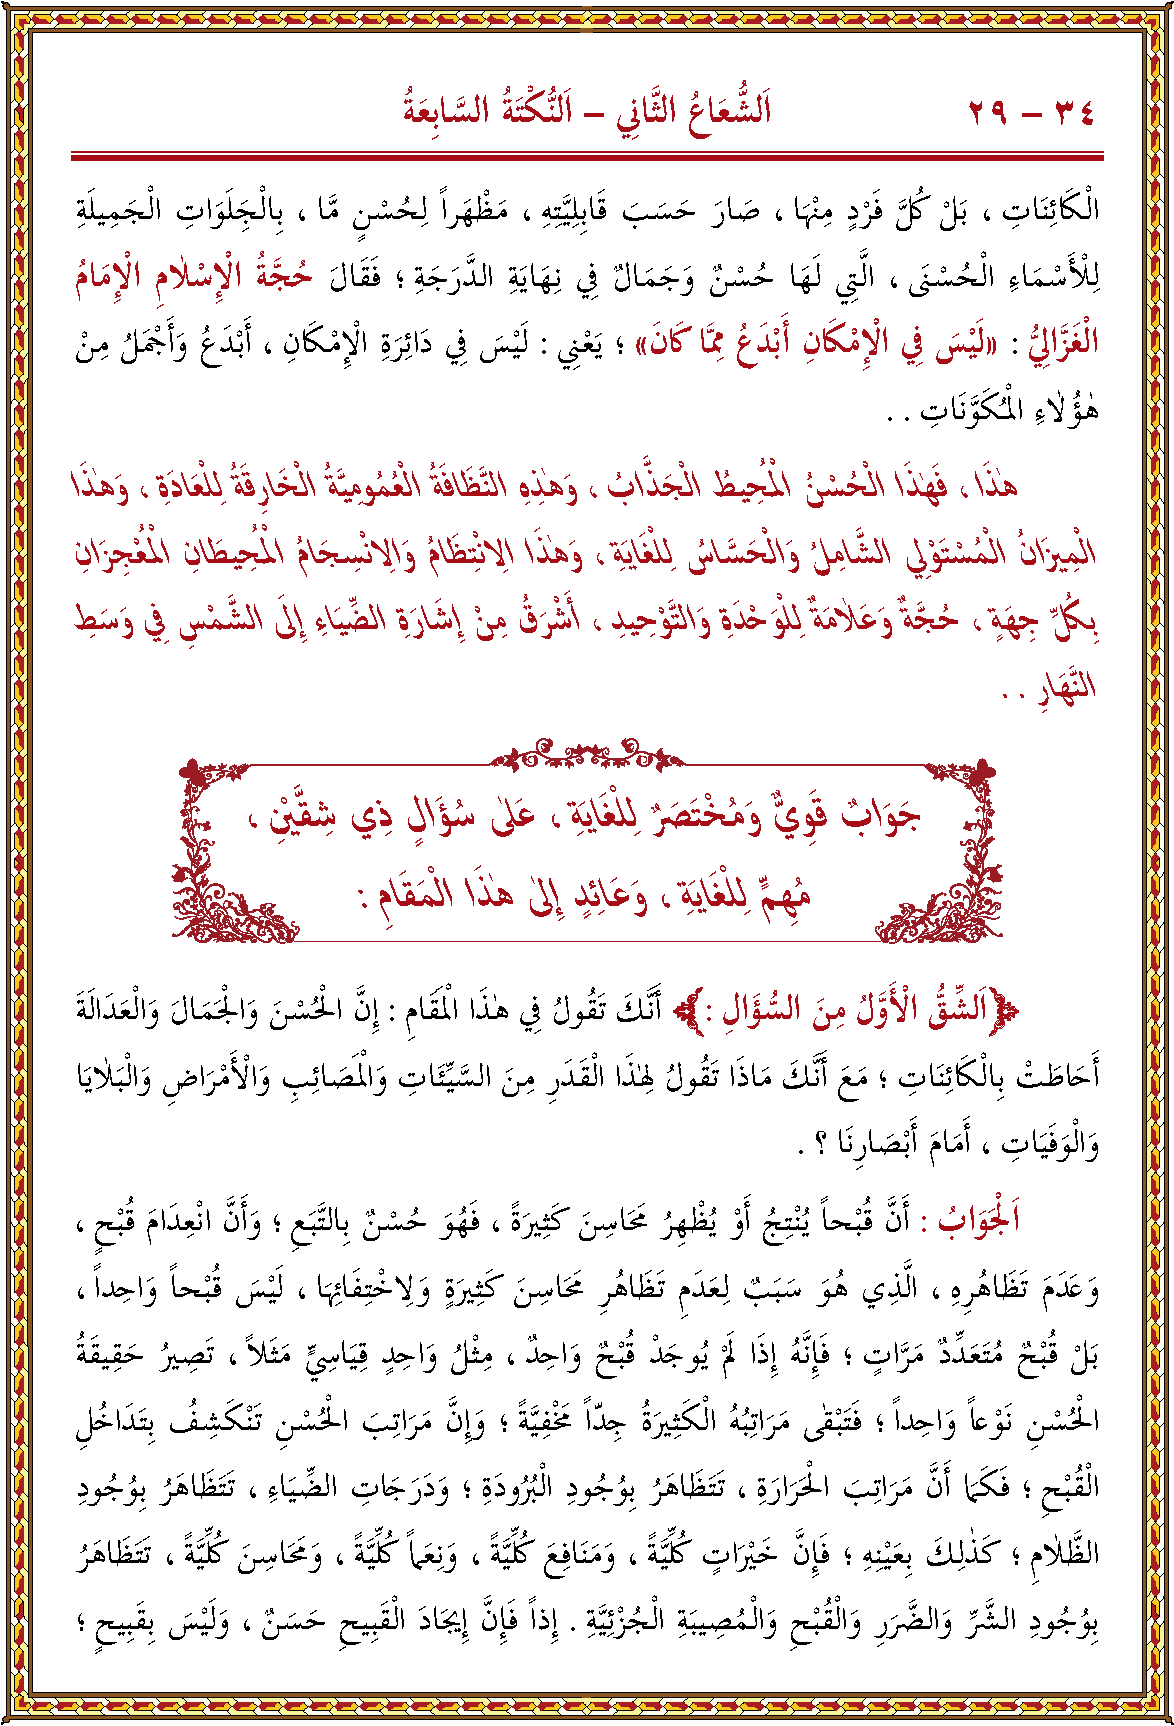 ٣٤ – ٢٩
اَلشُّعَاعُ الثَّانِي – اَلنُّكْتَةُ السَّابِعَةُ
الْكَائِنَاتِ ، بَلْ كُلَّ فَرْدٍ مِنْهَا ، صَارَ حَسَبَ قَابِلِيَّتِهِ ، مَظْهَراً لِحُسْنٍ مَّا ، بِالْجَلَوَاتِ الْجَمِيلَةِ
لِلْأَسْمَاءِ الْحُسْنَى ، الَّتِي لَهَا حُسْنٌ وَجَمَالٌ فِي نِهَايَةِ الدَّرَجَةِ ؛ فَقَالَ حُجَّةُ الْإِسْلَامِ الْإِمَامُ
الْغَزَّالِيُّ : «لَيْسَ فِي الْإِمْكَانِ أَبْدَعُ مِمَّا كَانَ» ؛ يَعْنِي : لَيْسَ فِي دَائِرَةِ الْإِمْكَانِ ، أَبْدَعُ وَأَجْمَلُ مِنْ
هٰؤُلَاءِ الْمُكَوَّنَاتِ . .
هٰذَا ، فَهٰذَا الْحُسْنُ الْمُحِيطُ الْجَذَّابُ ، وَهٰذِهِ النَّظَافَةُ الْعُمُومِيَّةُ الْخَارِقَةُ لِلْعَادَةِ ، وَهٰذَا
الْمِيزَانُ الْمُسْتَوْلِي الشَّامِلُ وَالْحَسَّاسُ لِلْغَايَةِ ، وَهٰذَا الِانْتِظَامُ وَالِانْسِجَامُ الْمُحِيطَانِ الْمُعْجِزَانِ
بِكُلِّ جِهَةٍ ، حُجَّةٌ وَعَلَامَةٌ لِلْوَحْدَةِ وَالتَّوْحِيدِ ، أَشْرَقُ مِنْ إِشَارَةِ الضِّيَاءِ إِلَى الشَّمْسِ فِي وَسَطِ
النَّهَارِ . .
جَوَابٌ قَوِيٌّ وَمُخْتَصَرٌ لِلْغَايَةِ ، عَلٰى سُؤَالٍ ذِي شِقَّيْنِ ،
مُهِمٍّ لِلْغَايَةِ ، وَعَائِدٍ إِلٰى هٰذَا الْمَقَامِ :
﴿اَلشِّقُّ الْأَوَّلُ مِنَ السُّؤَالِ :﴾ أَنَّكَ تَقُولُ فِي هٰذَا الْمَقَامِ : إِنَّ الْحُسْنَ وَالْجَمَالَ وَالْعَدَالَةَ
أَحَاطَتْ بِالْكَائِنَاتِ ؛ مَعَ أَنَّكَ مَاذَا تَقُولُ لِهٰذَا الْقَدَرِ مِنَ السَّيِّئَاتِ وَالْمَصَائِبِ وَالْأَمْرَاضِ وَالْبَلَايَا
وَالْوَفَيَاتِ ، أَمَامَ أَبْصَارِنَا ؟ .
اَلْجَوَابُ : أَنَّ قُبْحاً يُنْتِجُ أَوْ يُظْهِرُ مَحَاسِنَ كَثِيرَةً ، فَهُوَ حُسْنٌ بِالتَّبَعِ ؛ وَأَنَّ انْعِدَامَ قُبْحٍ ،
وَعَدَمَ تَظَاهُرِهِ ، الَّذِي هُوَ سَبَبٌ لِعَدَمِ تَظَاهُرِ مَحَاسِنَ كَثِيرَةٍ وَلِاخْتِفَائِهَا ، لَيْسَ قُبْحاً وَاحِداً ،
بَلْ قُبْحٌ مُتَعَدِّدٌ مَرَّاتٍ ؛ فَإِنَّهُ إِذَا لَمْ يُوجَدْ قُبْحٌ وَاحِدٌ ، مِثْلُ وَاحِدٍ قِيَاسِيٍّ مَثَلاً ، تَصِيرُ حَقِيقَةُ
الْحُسْنِ نَوْعاً وَاحِداً ؛ فَتَبْقٰى مَرَاتِبُهُ الْكَثِيرَةُ جِدّاً مَخْفِيَّةً ؛ وَإِنَّ مَرَاتِبَ الْحُسْنِ تَنْكَشِفُ بِتَدَاخُلِ
الْقُبْحِ ؛ فَكَمَا أَنَّ مَرَاتِبَ الْحَرَارَةِ ، تَتَظَاهَرُ بِوُجُودِ الْبُرُودَةِ ؛ وَدَرَجَاتِ الضِّيَاءِ ، تَتَظَاهَرُ بِوُجُودِ
الظَّلَامِ ؛ كَذٰلِكَ بِعَيْنِهِ ؛ فَإِنَّ خَيْرَاتٍ كُلِّيَّةً ، وَمَنَافِعَ كُلِّيَّةً ، وَنِعَماً كُلِّيَّةً ، وَمَحَاسِنَ كُلِّيَّةً ، تَتَظَاهَرُ
بِوُجُودِ الشَّرِّ وَالضَّرَرِ وَالْقُبْحِ وَالْمُصِيبَةِ الْجُزْئِيَّةِ . إِذاً فَإِنَّ إِيجَادَ الْقَبِيحِ حَسَنٌ ، وَلَيْسَ بِقَبِيحٍ ؛